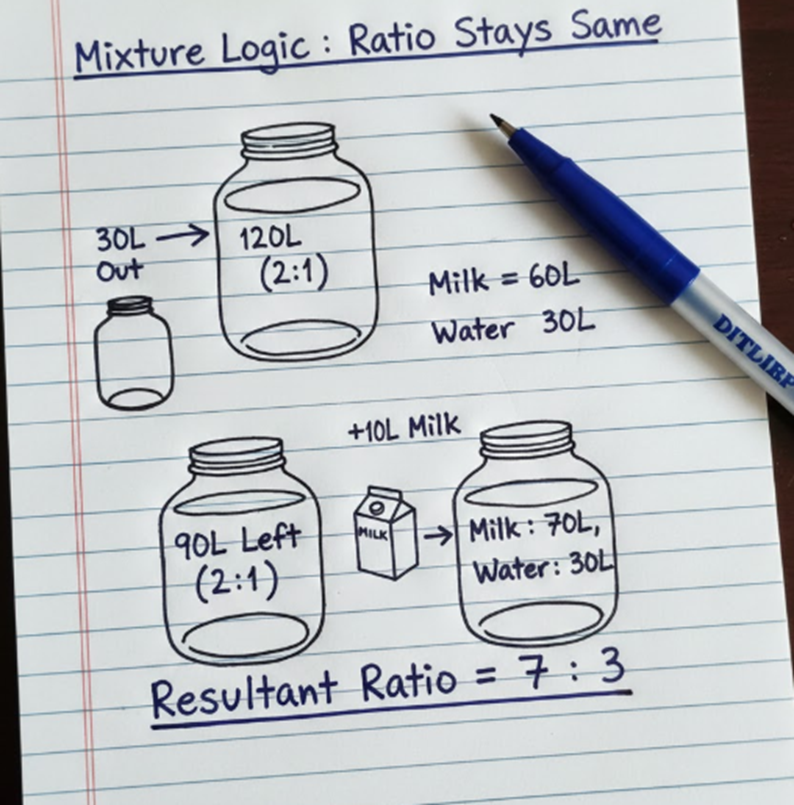 Mixture Logic : Ratio Stays Same
30L
Out
120L
(2:1)
Milk = 60L
Water 30L
+10L Milk
90L Left
(2:1)
MILK
Milk : 70L,
Water: 30L
Resultant Ratio = 7 : 3